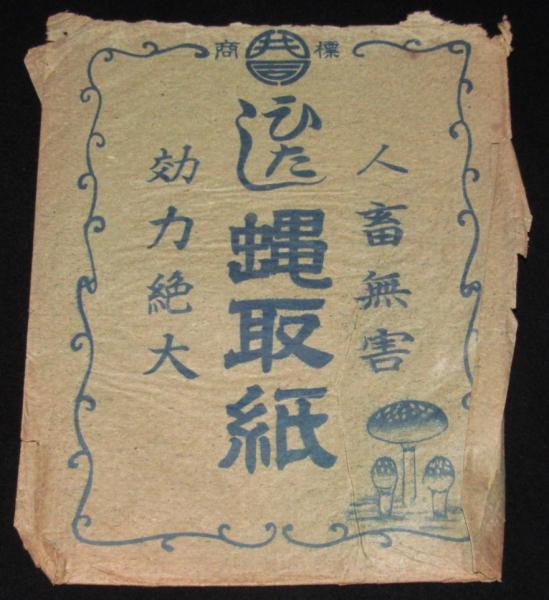 商標
人畜無害
ひたし
蝿取紙
効力絶大